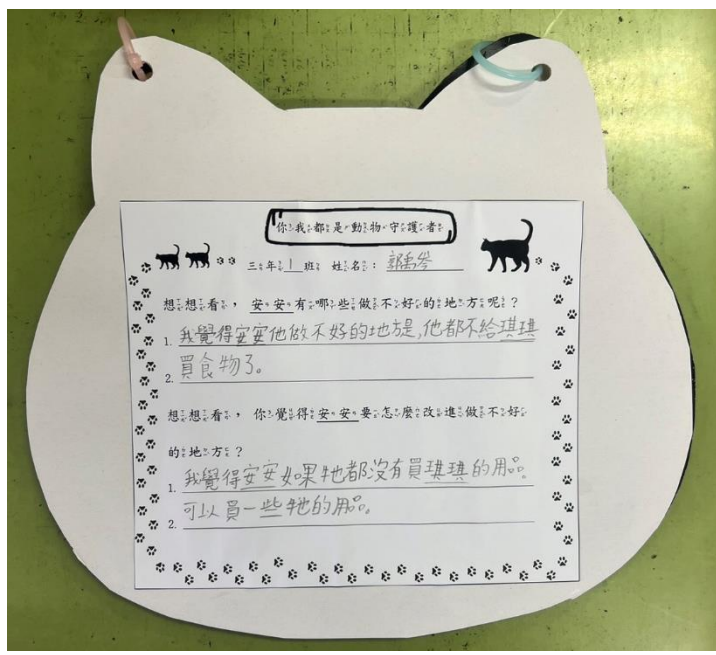 你我都是動物守護者
三年 1 班 姓名：郭禹岑
想想看，安安有哪些做不好的地方呢？
1. 我覺得安安他做不好的地方是，他都不給琪琪
2. 買食物了。
想想看，你覺得安安要怎麼改進做不好
的地方？
1. 我覺得安安如果牠都沒有買琪琪的用品
2. 可以買一些牠的用品。